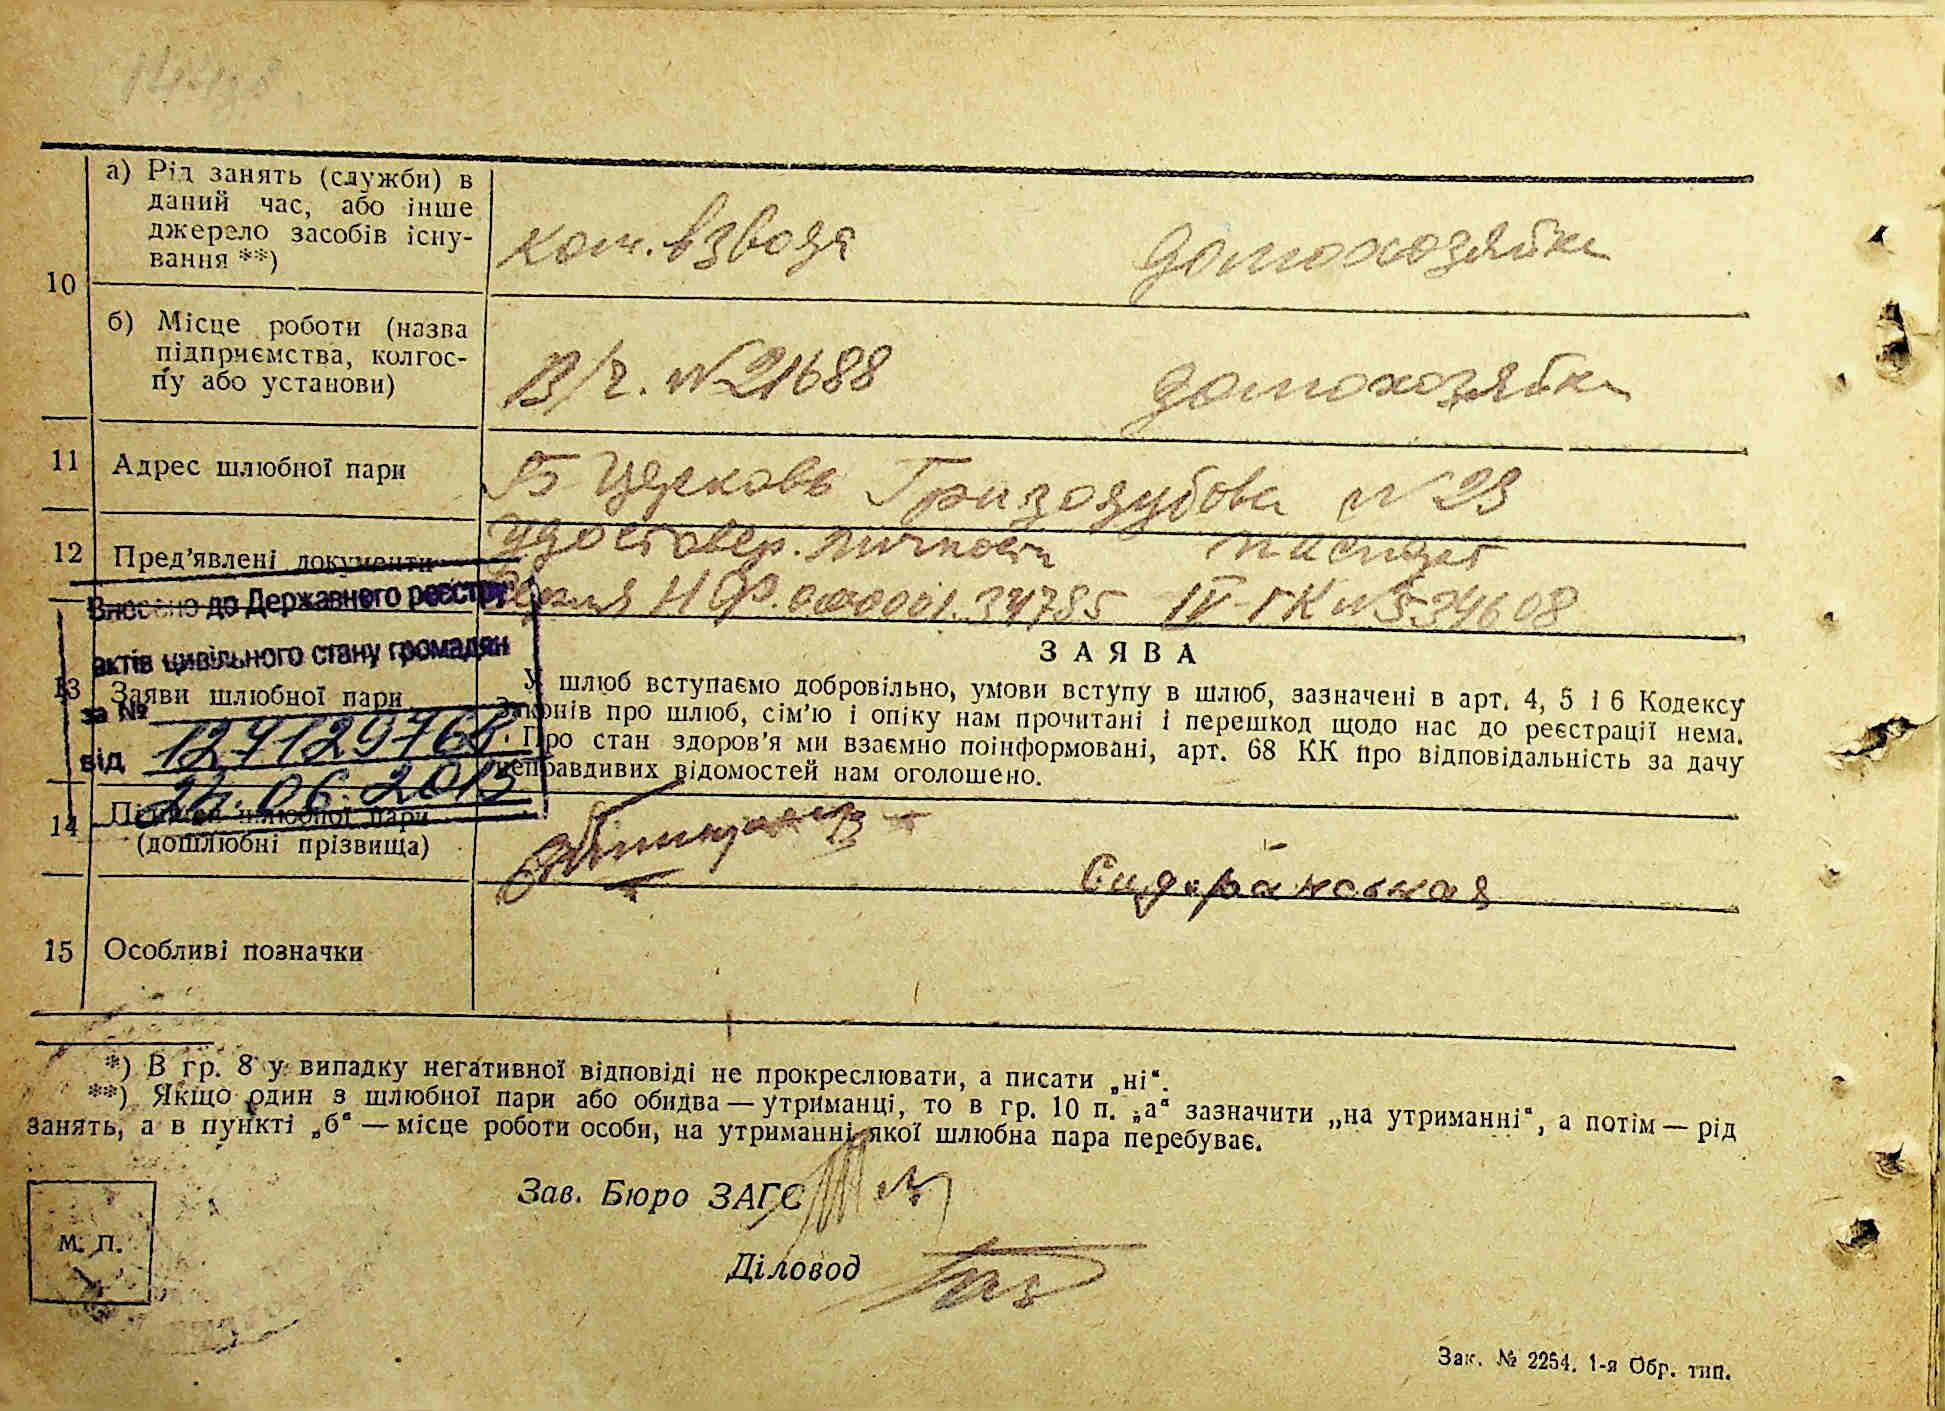 10
а) Рід занять (служби) в
даний час, або інше
джерело засобів існу-
вання **)
ком. взвода домохозяйка
б) Місце роботи (назва
підприємства, колгос-
пу або установи)
В/ч. №21688 домохозяйка
11 Адрес шлюбної пари
Б Церковь Гризодубова №29
12 Пред’явлені документи
удостовер. личности паспорт
серия IV-ГК №534608
Внесено до Державного реєстру
актів цивільного стану громадян
за №
від 24.06.2013
13 Заяви шлюбної пари
ЗАЯВА
У шлюб вступаємо добровільно, умови вступу в шлюб, зазначені в арт. 4, 5 і 6 Кодексу
Законів про шлюб, сім’ю і опіку нам прочитані і перешкод щодо нас до реєстрації нема.
Про стан здоров’я ми взаємно поінформовані, арт. 68 КК про відповідальність за дачу
неправдивих відомостей нам оголошено.
14 Підписи шлюбної пари
(дошлюбні прізвища)
15 Особливі позначки
*) В гр. 8 у випадку негативної відповіді не прокреслювати, а писати „ні“.
**) Якщо один з шлюбної пари або обидва — утриманці, то в гр. 10 п. „а“ зазначити „на утриманні“, а потім — рід
занять, а в пункті „б“ — місце роботи особи, на утриманні якої шлюбна пара перебуває.
Зав. Бюро ЗАГС
М. П.
Діловод
Зак. № 2254. 1-я Обр. тип.